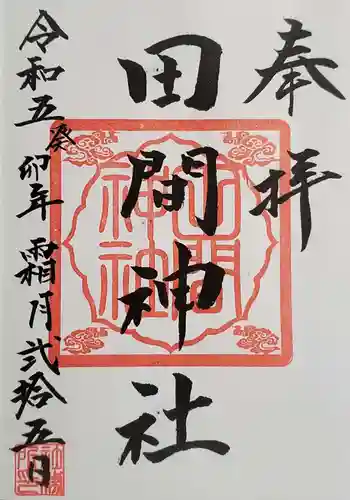 奉拝
田間神社
令和五癸卯年霜月弐拾五日
田間神社